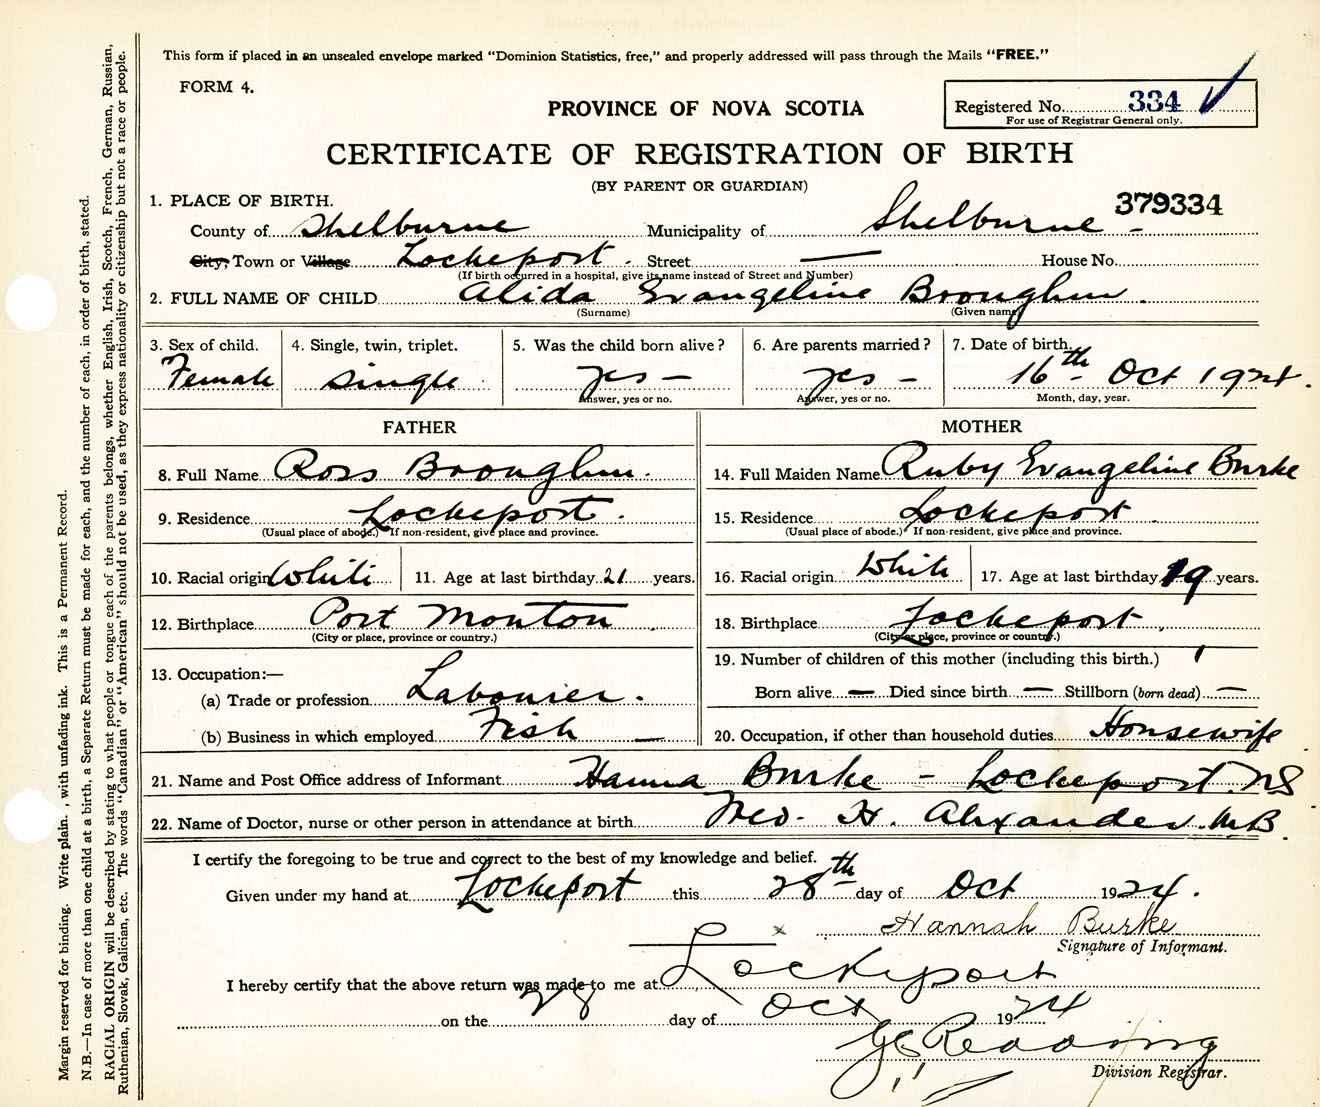 This form if placed in an unsealed envelope marked "Dominion Statistics, free," and properly addressed will pass through the Mails "FREE."
FORM 4.
Registered No. 334
For use of Registrar General only.
PROVINCE OF NOVA SCOTIA
CERTIFICATE OF REGISTRATION OF BIRTH
(BY PARENT OR GUARDIAN)
379334
1. PLACE OF BIRTH.
County of Shelburne Municipality of Shelburne -
City; Town or Village Lockeport. Street — House No.
(If birth occurred in a hospital, give its name instead of Street and Number)
2. FULL NAME OF CHILD Alida Evangeline Broughm.
(Surname) (Given name)
3. Sex of child. 4. Single, twin, triplet. 5. Was the child born alive? 6. Are parents married? 7. Date of birth.
Female single yes — yes — 16th Oct 1924.
Answer, yes or no. Answer, yes or no. Month, day, year.
FATHER MOTHER
8. Full Name Ross Broughm. 14. Full Maiden Name Ruby Evangeline Burke
9. Residence Lockeport. 15. Residence Lockeport.
(Usual place of abode.) If non-resident, give place and province. (Usual place of abode.) If non-resident, give place and province.
10. Racial origin White 11. Age at last birthday 21 years. 16. Racial origin White 17. Age at last birthday 19 years.
12. Birthplace Port Monton 18. Birthplace Lockeport.
(City or place, province or country.) (City or place, province or country.)
13. Occupation:— 19. Number of children of this mother (including this birth.) 1
(a) Trade or profession Labourer. Born alive — Died since birth — Stillborn (born dead) —
(b) Business in which employed Fish — 20. Occupation, if other than household duties Housewife
21. Name and Post Office address of Informant Hanna Burke - Lockeport. NS
22. Name of Doctor, nurse or other person in attendance at birth H. Alexander. M.B.
I certify the foregoing to be true and correct to the best of my knowledge and belief.
Given under my hand at Lockeport this 28th day of Oct 1924.
x Hannah Burke
Signature of Informant.
I hereby certify that the above return was made to me at Lockeport
on the 28 day of Oct 1924
Redding
Division Registrar.
Margin reserved for binding. Write plain, with unfading ink. This is a Permanent Record.
N.B.—In case of more than one child at a birth, a Separate Return must be made for each, and the number of each, in order of birth, stated.
RACIAL ORIGIN will be described by stating to what people or tongue each of the parents belongs, whether English, Irish, Scotch, French, German, Russian,
Ruthenian, Slovak, Galician, etc. The words "Canadian" or "American" should not be used, as they express nationality or citizenship but not a race or people.